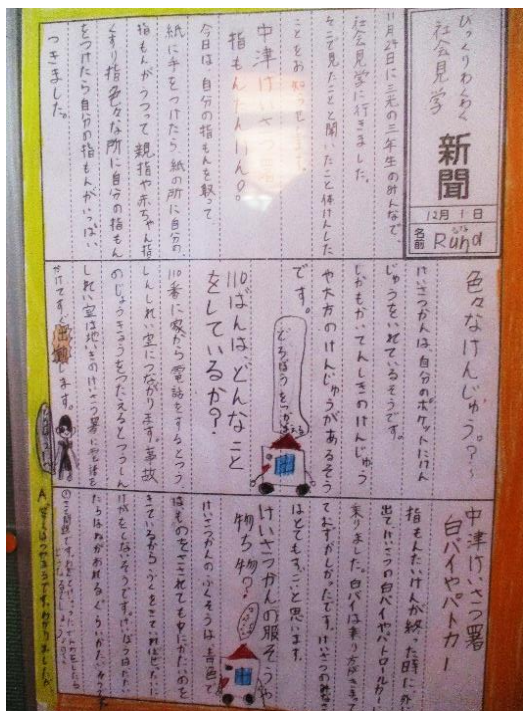 びっくりわくわく
社会見学
新聞
12月1日
名前 Runa
るな
11月29日に三元の三年生のみんなで、
社会見学に行きました。
そこで見たことと聞いたこと体けんした
ことをお知らせします。
中津けいさつ署
指もんたいけん。
今日は自分の指もんを取って
紙に手をつけたら、紙の所に自分の、
指もんがうつって親指や赤ちゃん指
くすり指色々な所に自分の指もん
をつけたら自分の指もんがいっぱい
つきました。
色々なけんじゅう。?
けいさつかんは、自分のポケットにけん
じゅうをいれているそうです。
しかもかいてんしきのけんじゅう
や大方のけんじゅうがあるそう
です。
どろぼうをつかまえる
110ばんは、どんなこと
をしているか?
110番に家から電話をするとつう
しんしれい室につながります。事故
のじょうきょうをつたえるとつうしん
しれい室は地いきのけいさつ署に電話を
かけてすぐ出動します。
中津けいさつ署
白バイやパトカー
指もんたいけんが終った時に外に
出て、けいさつの白バイやパトロールカーに
乗りました。白バイは乗り方がきまって
てむずかしかったです。けいさつの
はとてもすごいと思います。
けいさつかんの服そうや
物ち物?
けいさつかんのふくそうは青色で
はものをさされても中にかたいのを
きているから
けがをしないそうです。けいぼうはたたい
たらほねがおれるぐらいかたい